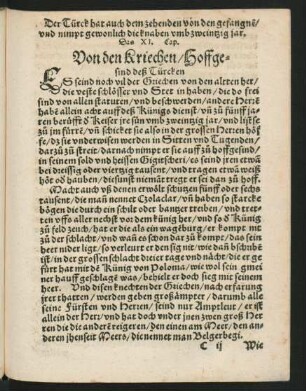 Der Türck hat auch dem zehenden von den gefangnē/
vnd nimpt gewonlich die knaben vmb zweintzig jar.
Das XI. Cap.
Von den Kriechen/ Hoffge-
sind deß Türcken
ES seind noch vil der Griechen von den alten her/
die veste schlösser vnd Stett in haben/ die do frei
sind von allen staturen/ vnd beschwerden/ ander Herrē
habē allein acht auff deß Künigs dienst/ vn̄ zů fünff ja-
ren berüfft ð Keiser jre sön vnd zweinzig jar/ vnd list se
zů jm fürē/ vn̄ schicket sie also in der grossen Herren höf
fe/ dz sie vnderwisen werden in Sitten vnd Tugenden/
darzů zů streit. darnach nimpt er sie auff zů hoffgesind/
in seinem sold vnd heissen Gigitscheri/ es seind jren etwā
bei dreissig oder viertzig tausent/ vnd tragen etwā weiß
hőt oð hauben/ die sunst niemāt tregt er sei dan zů hoff.
Macht auch vß denen erwölt schützen fünff oder sechs
tausent/ die man nennet Czolaclar/ vn̄ haben so starcke
bögen die durch ein schilt oder bantzer treiben/ vnd tret-
ten vff allernechst vor dem künig her/ vnd so ð Künig
zů feld zeucht/ hat er die als ein wagēburg/ er kompt mt
zů der schlacht/ vnd wan es schon dar zů kompt/ das sein
heer nider ligt/ so verleurt er den sig nit/ wie dañ bschāhē
ist/ in der grossen schlacht dreier tage vnd nächt/ die er ge
fürt hat mit dē Künig von Polonia/ wie wol sein gmei
ner hauff geschlagē was/ behielt er doch sieg mit seinem
heer. Vnd disen knechten der Griechen/ nach erfarung
jrer thatten/ werden geben großämpter/ darumb alle
seine Fürsten vnd Herren/ seind nur Amptleut/ er ist
allein der Herr/ vnd hat doch vnder jnen zwen groß Her
ren die die andere reigeren/ den einen am Meer/ den an-
deren jhenseit Meers/ die nennet man Belgerbegi.
C ij Wie